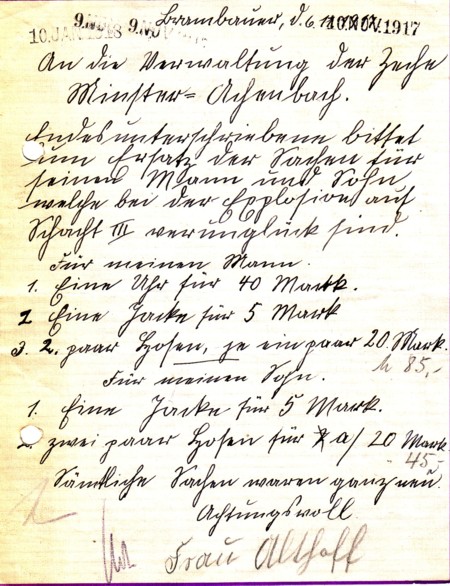 9. NOV. 9. NOV. Brambauer, d. 6. 10. NOV. 1917
10. JAN. 1918
An die Verwaltung der Zeche
Minster=Achenbach.
Endesunterschriebene bittet
um Ersatz der Sachen für
seinen Mann und Sohn
welche bei der Explosion auf
Schacht III verunglück sind.
Für meinen Mann.
1. Eine Uhr für 40 Mark.
2 Eine Jacke für 5 Mark
3. 2. paar Hosen, je ein paar 20. Mark.
M 85,-
Für meinen Sohn.
1. Eine Jacke für 5 Mark.
2. zwei paar Hosen für a/ 20 Mark
45,-
Sämtliche Sachen waren ganz neu.
Achtungsvoll
Frau Althoff